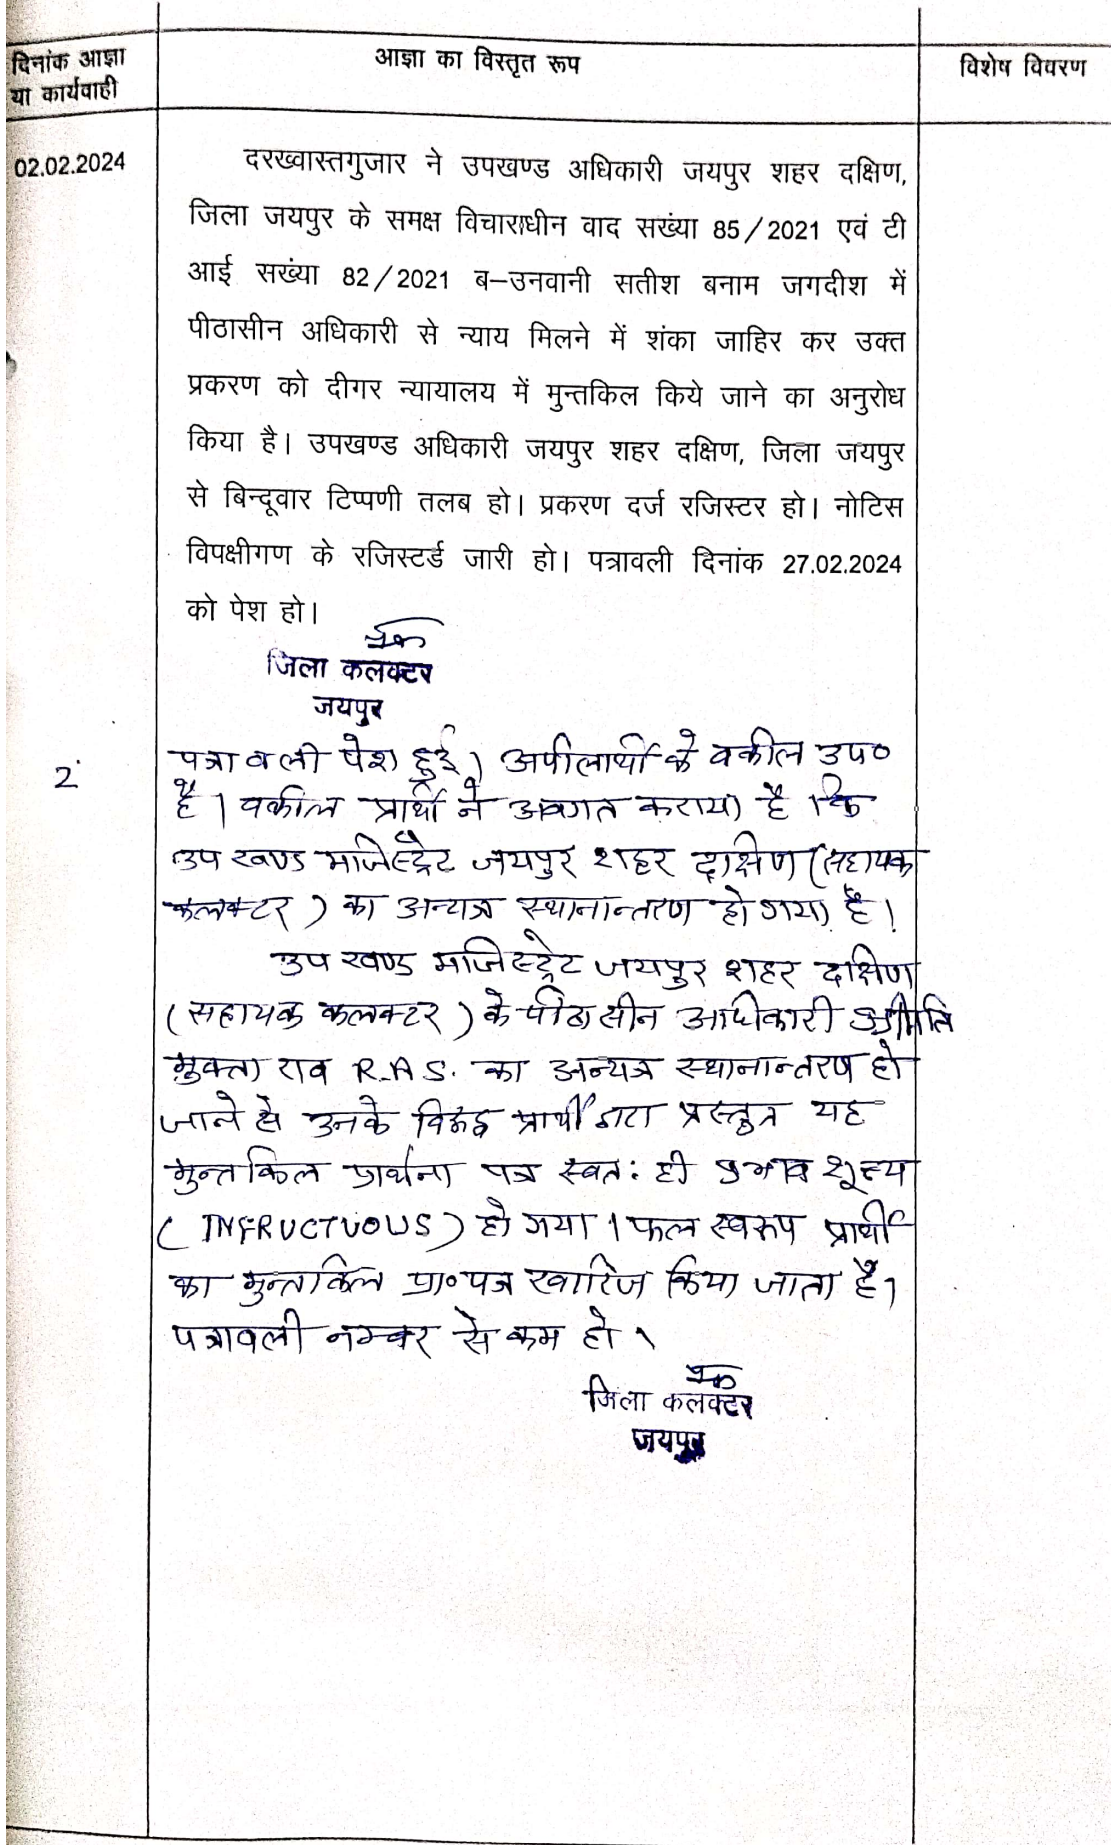 दिनांक आज्ञा
या कार्यवाही
आज्ञा का विस्तृत रूप
विशेष विवरण
02.02.2024
दरख्वास्तगुजार ने उपखण्ड अधिकारी जयपुर शहर दक्षिण,
जिला जयपुर के समक्ष विचाराधीन वाद सख्या 85/2021 एवं टी
आई सख्या 82/2021 ब–उनवानी सतीश बनाम जगदीश में
पीठासीन अधिकारी से न्याय मिलने में शंका जाहिर कर उक्त
प्रकरण को दीगर न्यायालय में मुन्तकिल किये जाने का अनुरोध
किया है। उपखण्ड अधिकारी जयपुर शहर दक्षिण, जिला जयपुर
से बिन्दूवार टिप्पणी तलब हो। प्रकरण दर्ज रजिस्टर हो। नोटिस
विपक्षीगण के रजिस्टर्ड जारी हो। पत्रावली दिनांक 27.02.2024
को पेश हो।
जिला कलक्टर
जयपुर
2
पत्रावली पेश हुई। अपीलार्थी के वकील उप०
है। वकील प्रार्थी ने अवगत कराया है कि
उप खण्ड मजिस्ट्रेट जयपुर शहर दक्षिण (सहायक
कलक्टर) का अन्यत्र स्थानान्तरण हो गया है।
उप खण्ड मजिस्ट्रेट जयपुर शहर दक्षिण
(सहायक कलक्टर) के पीठासीन अधिकारी श्रीमति
मुक्ता राव R.A.S. का अन्यत्र स्थानान्तरण हो
जाने से उनके विरूद्ध प्रार्थी द्वारा प्रस्तुत यह
मुन्तकिल प्रार्थना पत्र स्वत: ही प्रभाव शून्य
(INFRUCTUOUS) हो गया। फल स्वरूप प्रार्थी
का मुन्तकिल प्रा०पत्र खारिज किया जाता है।
पत्रावली नम्बर से कम हो।
जिला कलक्टर
जयपुर